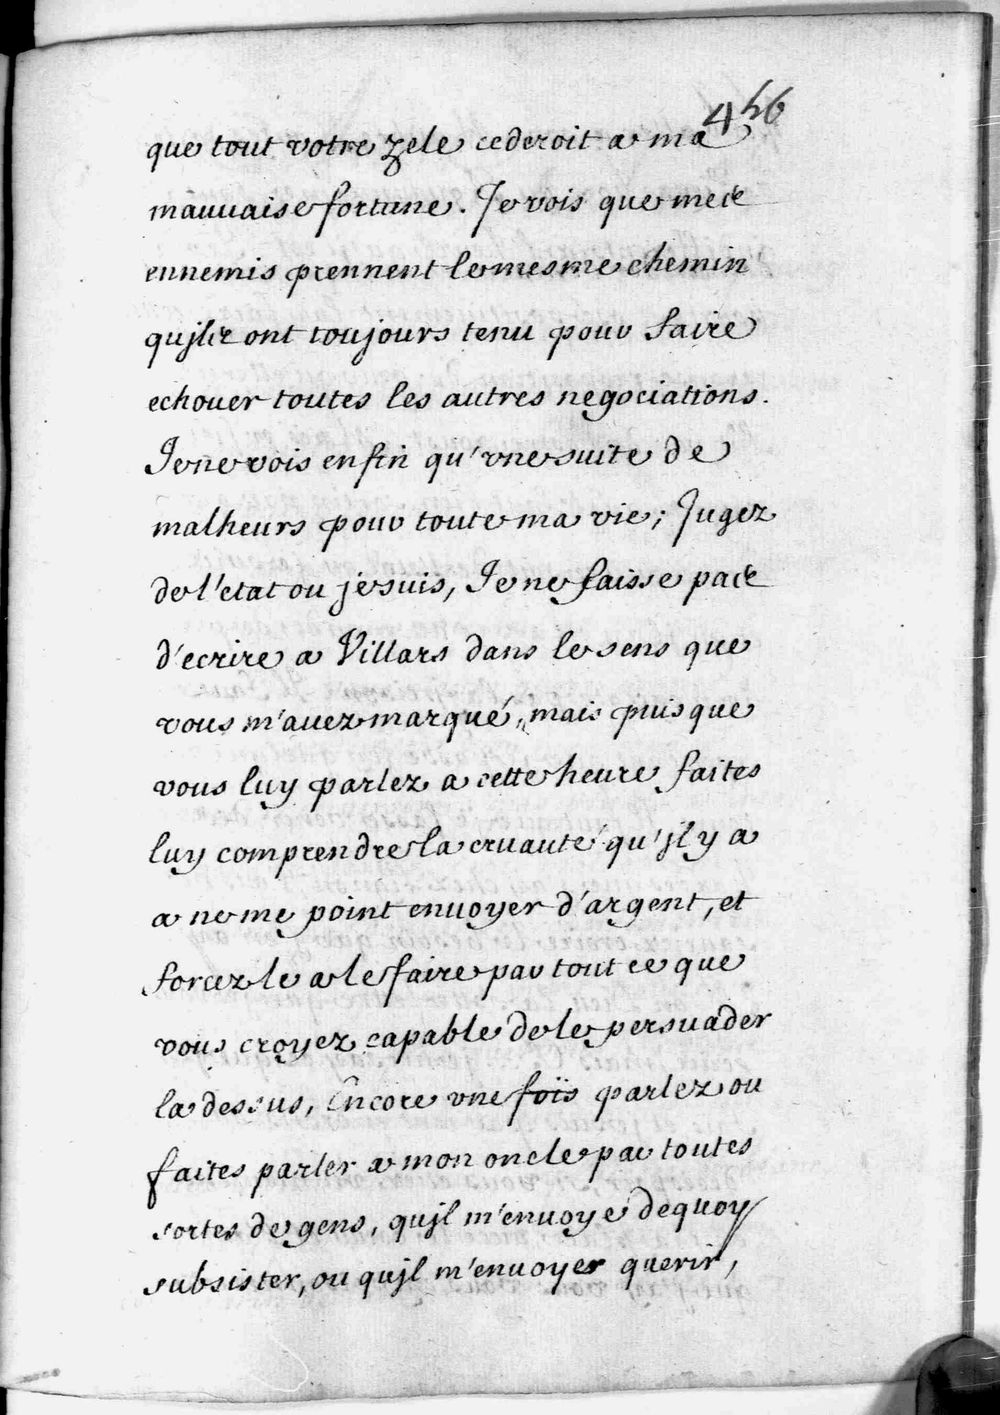 456
que tout votre zele cederoit a ma
mauuaise fortune. Je vois que mes
ennemis prennent le mesme chemin
qu'jls ont toujours tenu pour faire
echouer toutes les autres negociations.
Je ne vois enfin qu'vne suite de
malheurs pour toute ma vie; Jugez
de l'etat ou je suis, Je ne laisse pas
d'ecrire a Villars dans le sens que
vous m'auez marqué, mais puis que
vous luy parlez a cette heure faites
luy comprendre la cruauté qu'jl y a
a ne me point enuoyer d'argent, et
forcez le a le faire par tout ce que
vous croyez capable de le persuader
la dessus, Encore vne fois parlez ou
faites parler a mon oncle par toutes
sortes de gens, qujl m'enuoye dequoy
subsister, ou qujl m'enuoyer querir,